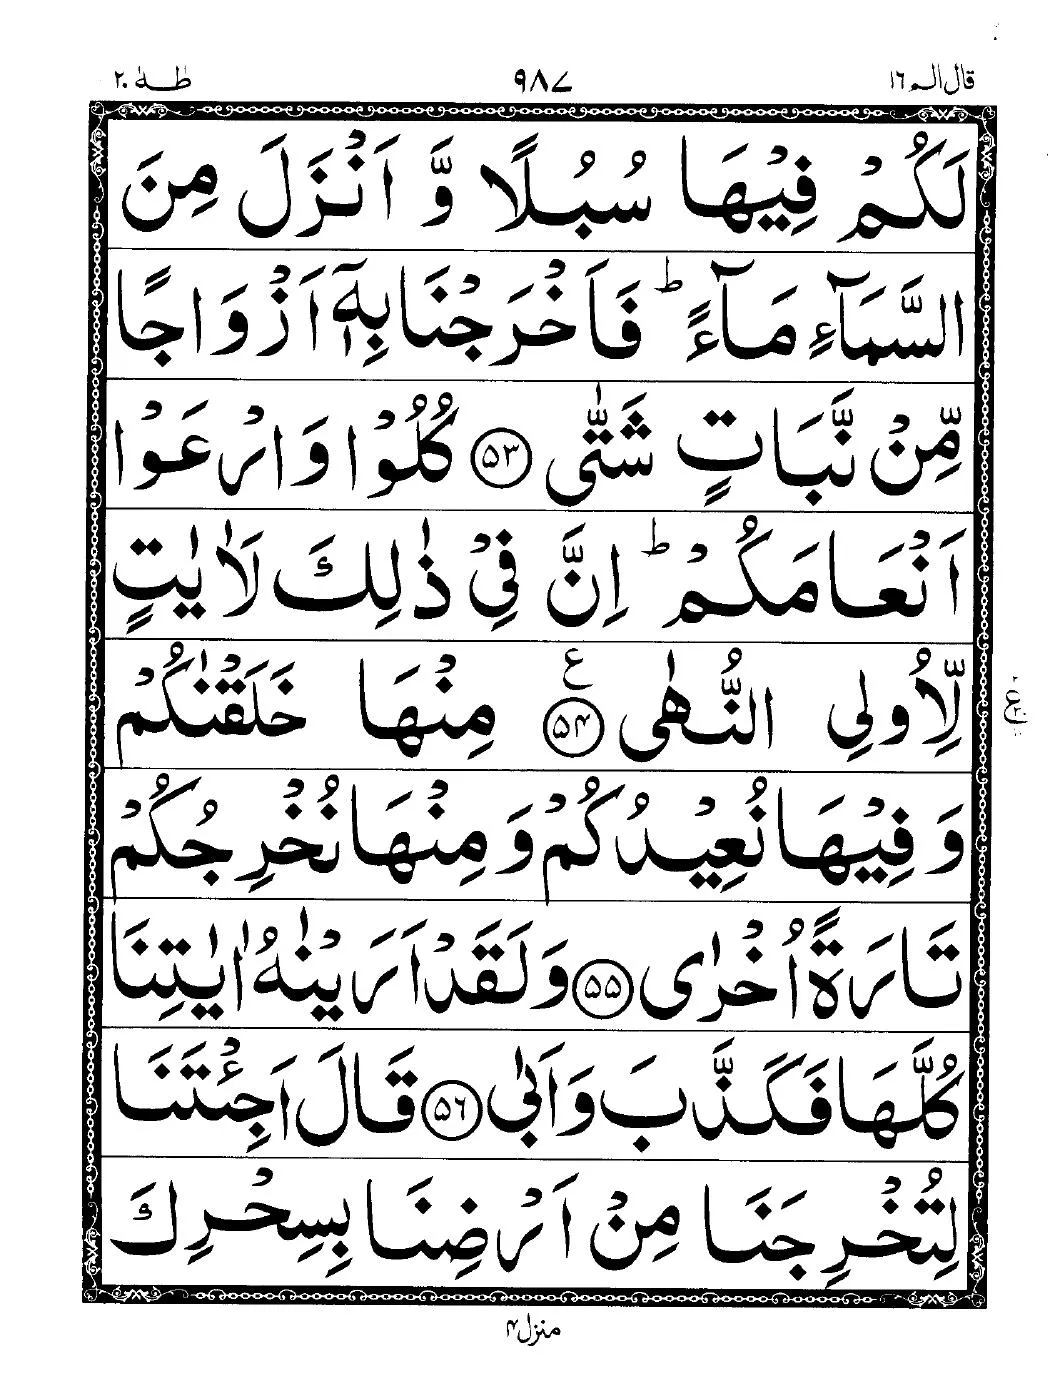 قال الم ١٦ ٩٨٧ طٰهٰ ٢٠
لَكُمْ فِيْهَا سُبُلًا وَّ اَنْزَلَ مِنَ
السَّمَآءِ مَآءً ؕ فَاَخْرَجْنَا بِهٖۤ اَزْوَاجًا
مِّنْ نَّبَاتٍ شَتّٰى ﴿۵۳﴾ كُلُوْا وَارْعَوْا
اَنْعَامَكُمْ ؕ اِنَّ فِيْ ذٰلِكَ لَاٰيٰتٍ
لِّاُولِي النُّهٰى ﴿۵۴﴾ ع مِنْهَا خَلَقْنٰكُمْ
وَفِيْهَا نُعِيْدُكُمْ وَمِنْهَا نُخْرِجُكُمْ
تَارَةً اُخْرٰى ﴿۵۵﴾ وَلَقَدْ اَرَيْنٰهُ اٰيٰتِنَا
كُلَّهَا فَكَذَّبَ وَاَبٰى ﴿۵۶﴾ قَالَ اَجِئْتَنَا
لِتُخْرِجَنَا مِنْ اَرْضِنَا بِسِحْرِكَ
منزل ۴